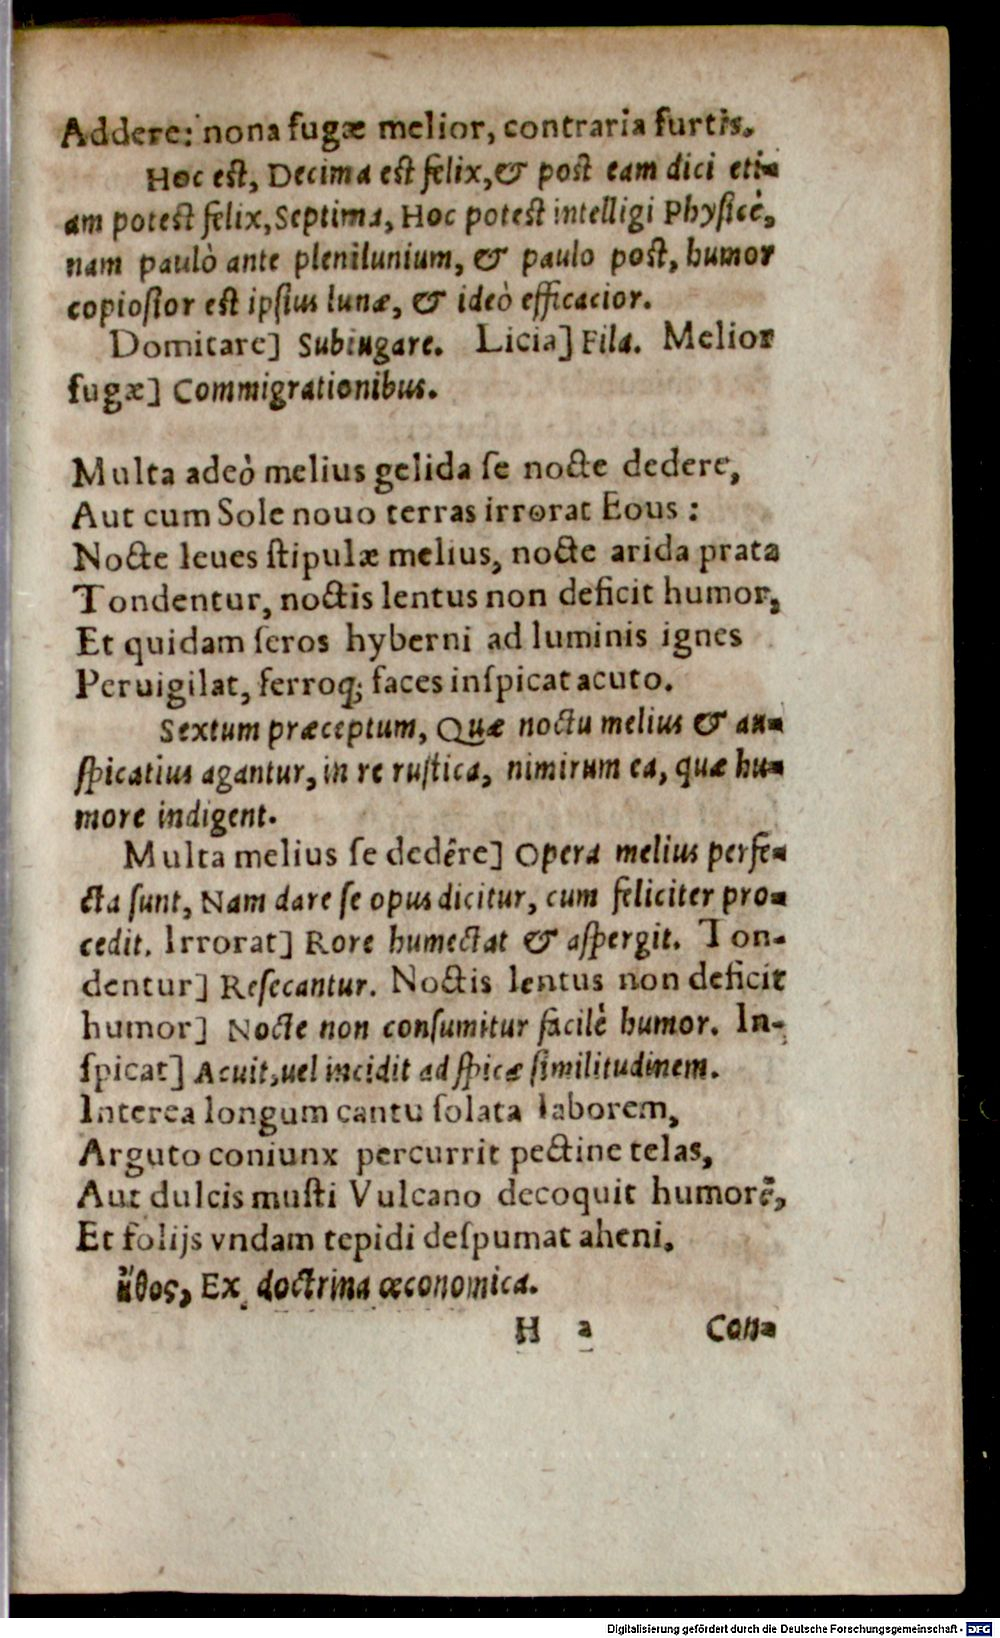 Addere: nona fugæ melior, contraria furtis.
Hoc est, Decima est felix, & post eam dici eti-
am potest felix, Septima, Hoc potest intelligi Physicè,
nam paulò ante plenilunium, & paulo post, humor
copiosior est ipsius lunæ, & ideò efficacior.
Domitare] Subiugare. Licia] Fila. Melior
fugæ] Commigrationibus.
Multa adeò melius gelida se nocte dedere,
Aut cum Sole nouo terras irrorat Eous:
Nocte leues stipulæ melius, nocte arida prata
Tondentur, noctis lentus non deficit humor,
Et quidam seros hyberni ad luminis ignes
Peruigilat, ferroq; faces inspicat acuto.
Sextum præceptum, Quæ noctu melius & au-
spicatius agantur, in re rustica, nimirum ea, quæ hu-
more indigent.
Multa melius se dedêre] Opera melius perfe-
cta sunt, Nam dare se opus dicitur, cum feliciter pro-
cedit. Irrorat] Rore humectat & aspergit. Ton-
dentur] Resecantur. Noctis lentus non deficit
humor] Nocte non consumitur facilè humor. In-
spicat] Acuit, uel incidit ad spicæ similitudinem.
Interea longum cantu solata laborem,
Arguto coniunx percurrit pectine telas,
Aut dulcis musti Vulcano decoquit humorē,
Et folijs vndam tepidi despumat aheni.
ἦθος, Ex doctrina œconomica.
H 2 Con-
Digitalisierung gefördert durch die Deutsche Forschungsgemeinschaft - DFG